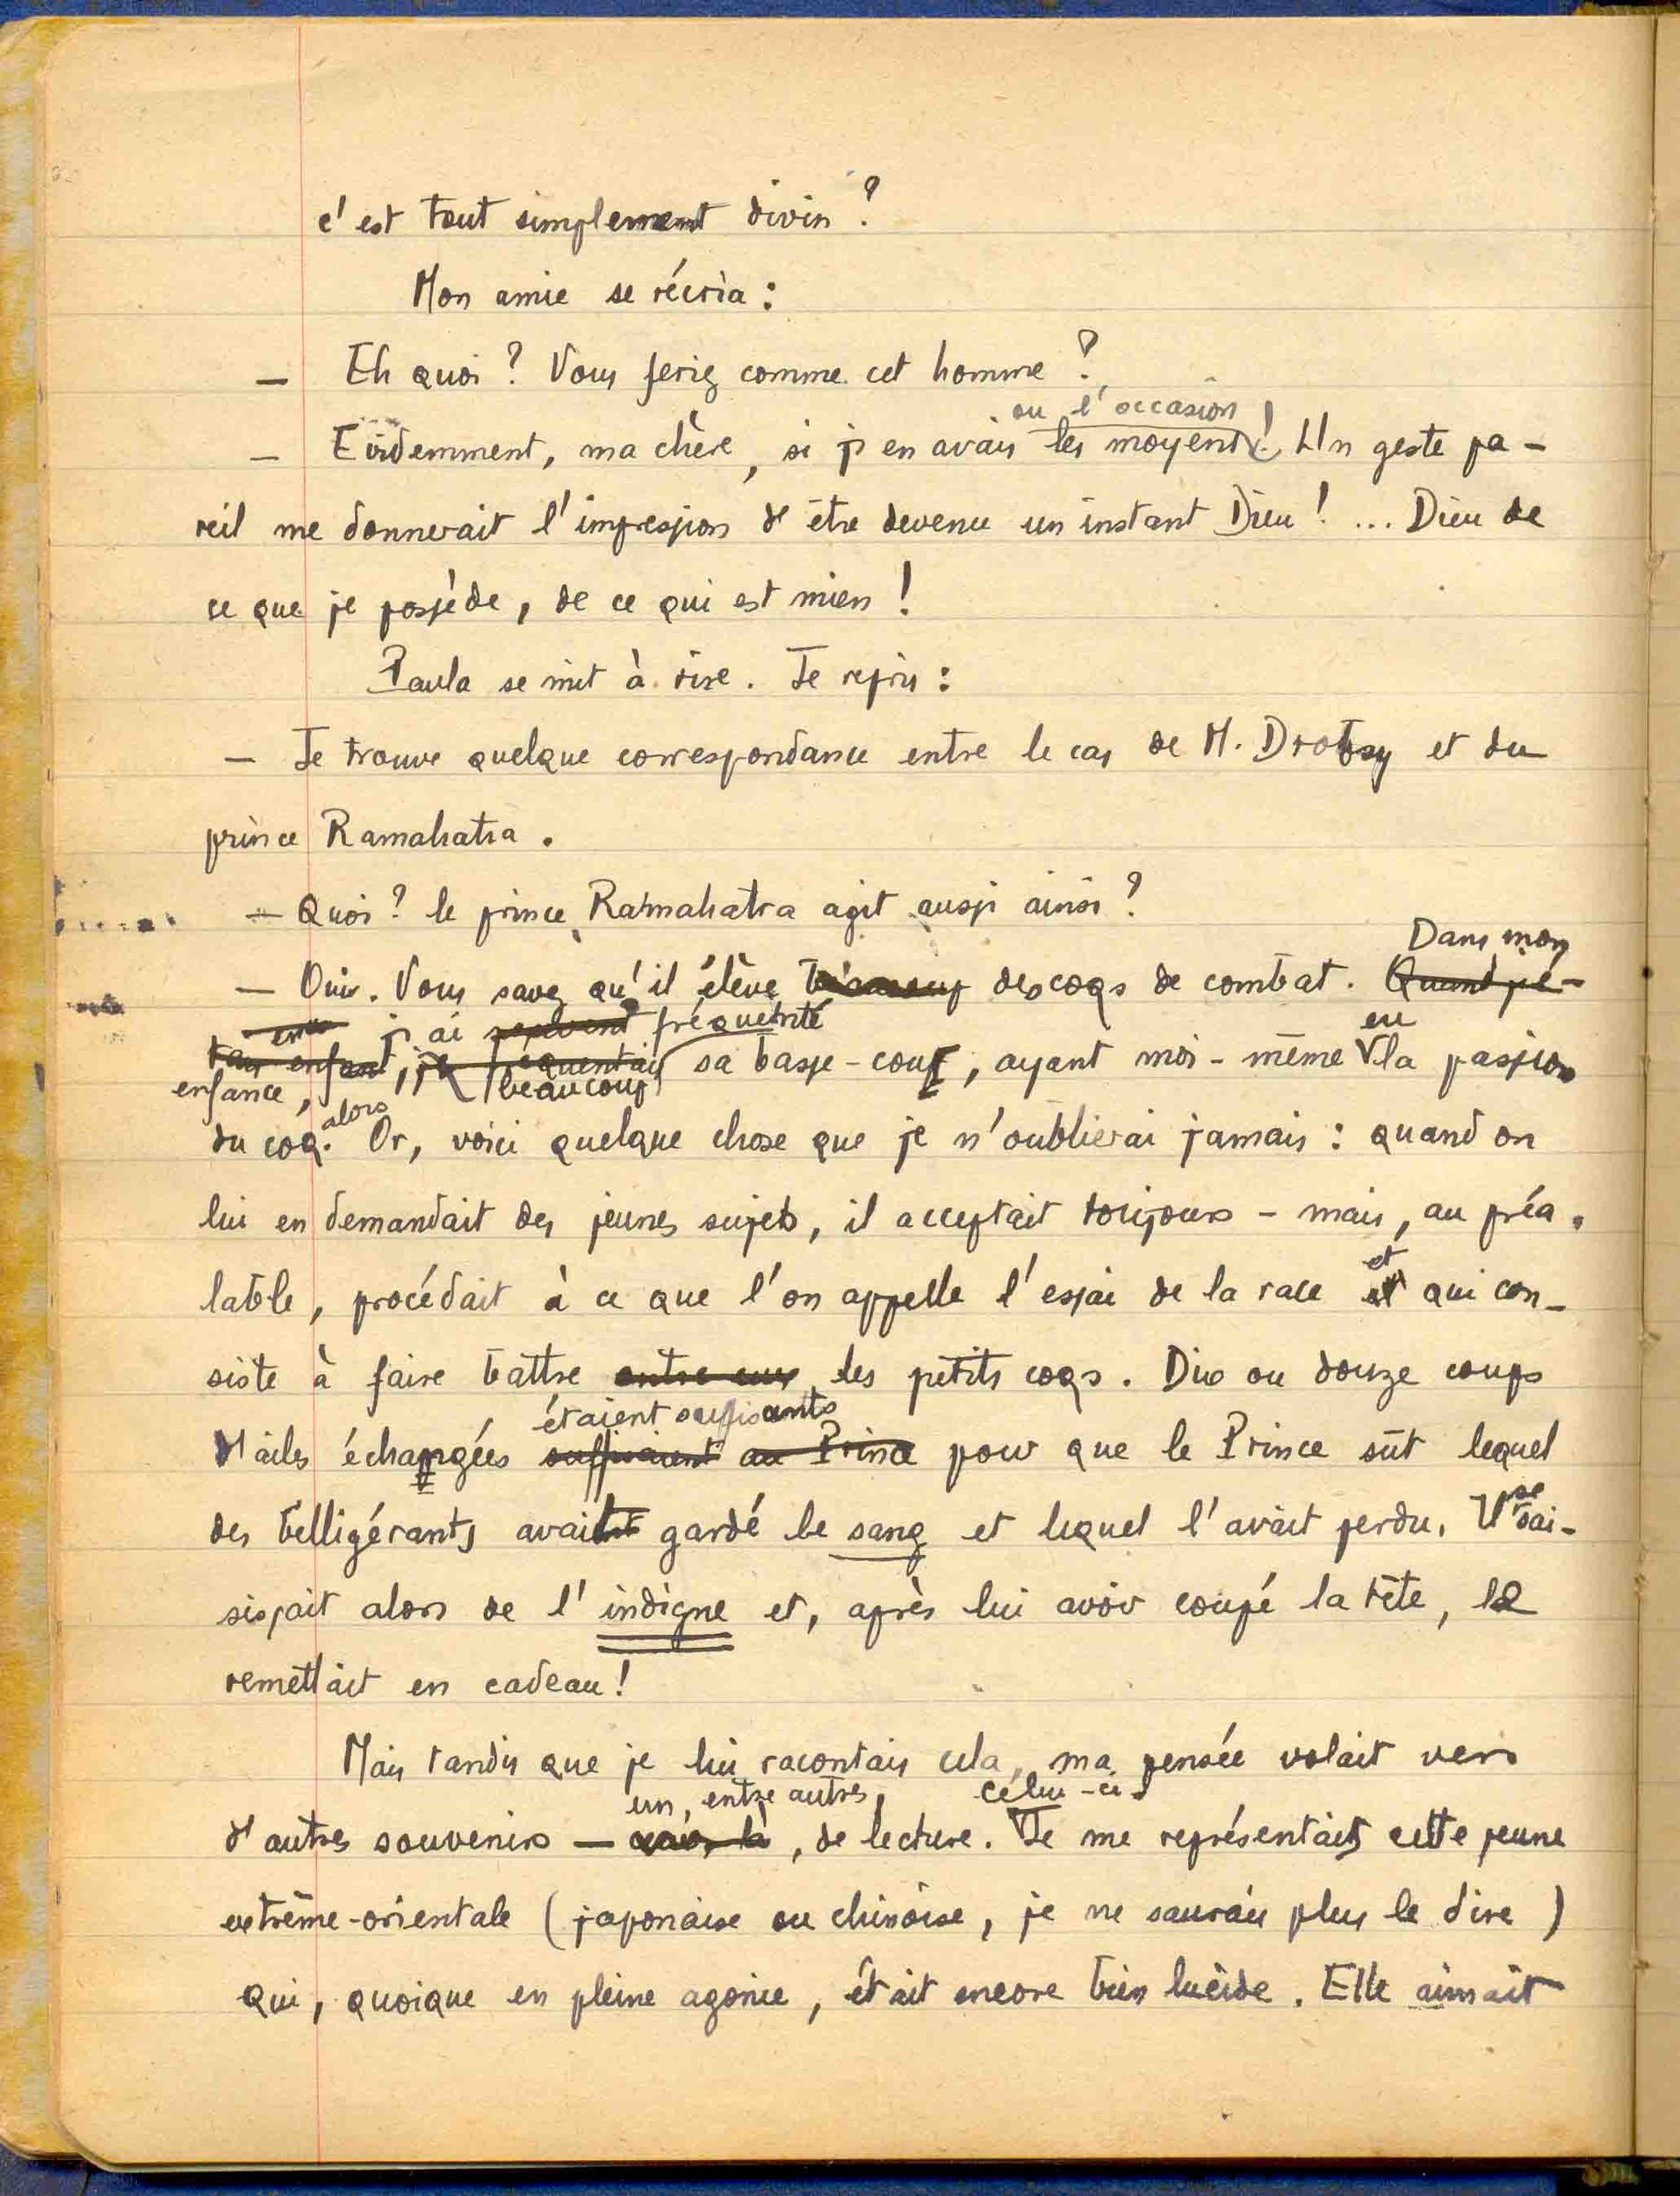 c'est tout simplement divin ?
Mon amie se récria :
— Eh quoi ? Vous feriez comme cet homme ?
ou l'occasion
— Evidemment, ma chère, si j'en avais les moyens ! Un geste pa-
reil me donnerait l'impression d'être devenu un instant Dieu ! ... Dieu de
ce que je possède, de ce qui est mien !
Paula se mit à rire. Je repris :
— Je trouve quelque correspondance entre le cas de M. Drotsy et du
prince Ramahatra.
— Quoi ? le prince Ramahatra agit aussi ainsi ?
Dans mon
— Oui. Vous savez qu'il élève beaucoup des coqs de combat. Quand j'é-
j'ai souvent fréquenté eu
tais enfant, je fréquentais sa basse-cour, ayant moi-même la passion
enfance, beaucoup
alors
du coq. Or, voici quelque chose que je n'oublierai jamais : quand on
lui en demandait des jeunes sujets, il acceptait toujours - mais, au préa-
et
lable, procédait à ce que l'on appelle l'essai de la race et qui con-
siste à faire battre entre eux les petits coqs. Dix ou douze coups
étaient suffisants
d'ailes échangées suffisaient au Prince pour que le Prince sût lequel
se
des belligérants avait gardé le sang et lequel l'avait perdu. Il sai-
sissait alors de l'indigne et, après lui avoir coupé la tête, le
remettait en cadeau !
Mais tandis que je lui racontais cela, ma pensée volait vers
un, entre autres, celui-ci.
d'autres souvenirs — , de lecture. Je me représentais cette jeune
extrême-orientale (japonaise ou chinoise, je ne saurais plus le dire)
qui, quoique en pleine agonie, était encore bien lucide. Elle aimait